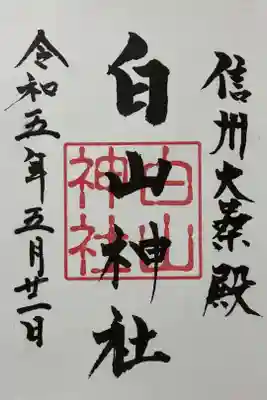 信州大桑殿
白山神社
白山
神社
令和五年五月廿一日